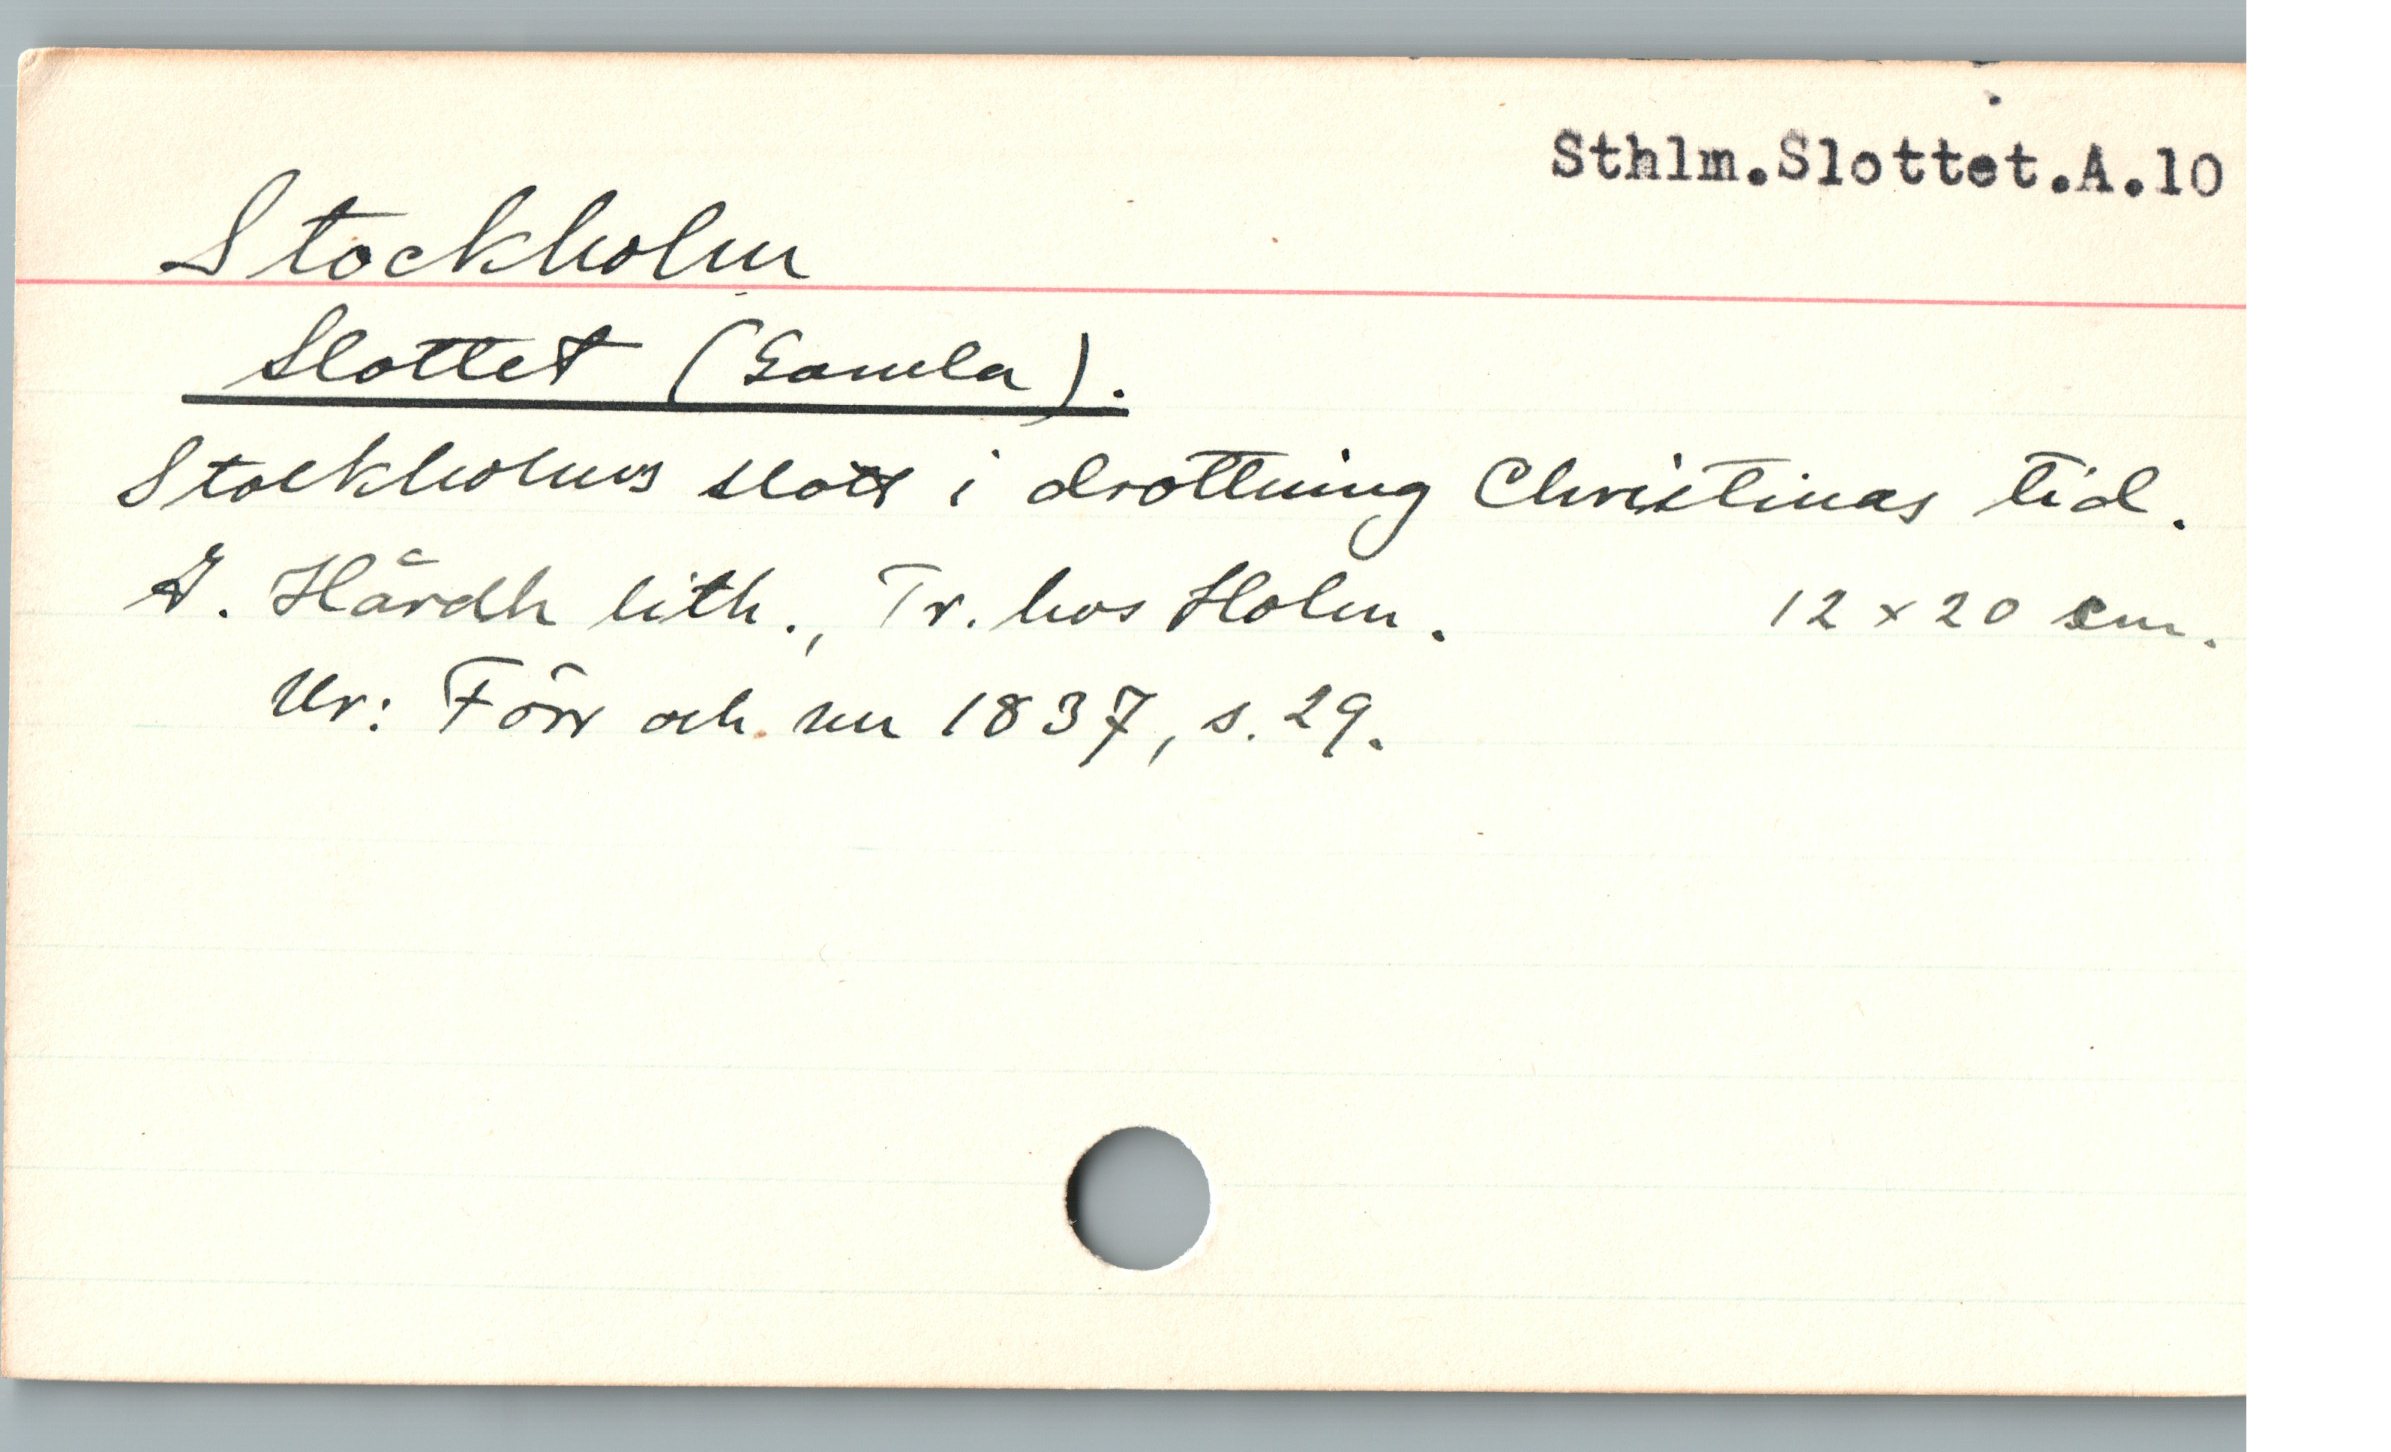 Sthlm.Slottet.A.10
Stockholm
Slottet (Gamla).
Stockholms slott i drottning Christinas tid.
G. Hårdh lith., Tr. hos Holm. 12 x 20 cm.
Ur: Förr och nu 1837, s. 29.